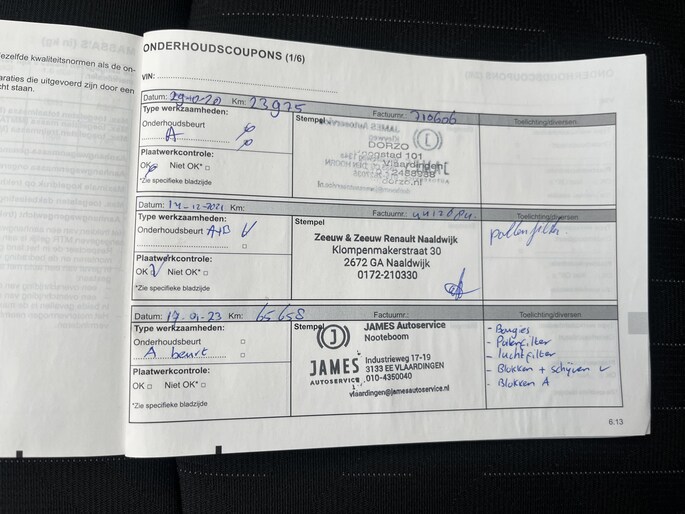 MASSA'S (in kg)
ezelfde kwaliteitsnormen als de on-
araties die uitgevoerd zijn door een
cht staan.
ONDERHOUDSCOUPONS (1/6)
VIN:
Datum: 29-12-20 Km: 23975 Factuurnr.: 710606 Toelichting/diversen
Type werkzaamheden:
Onderhoudsbeurt
A
Stempel
DORZO
101
Vlaardingen
dorzo.nl
Plaatwerkcontrole:
OK Niet OK*
*Zie specifieke bladzijde
Datum: 14-12-2021 Km: Factuurnr.: Toelichting/diversen
Type werkzaamheden:
Onderhoudsbeurt A+B V
Stempel
Zeeuw & Zeeuw Renault Naaldwijk
Klompenmakerstraat 30
2672 GA Naaldwijk
0172-210330
pollenfilter
Plaatwerkcontrole:
OK V Niet OK*
*Zie specifieke bladzijde
Datum: 17-01-23 Km: 65658 Factuurnr.: Toelichting/diversen
Type werkzaamheden:
Onderhoudsbeurt
A beurt
Stempel
JAMES Autoservice
Nooteboom
JAMES
AUTOSERVICE
Industrieweg 17-19
3133 EE VLAARDINGEN
010-4350040
vlaardingen@jamesautoservice.nl
- Bougies
- Pollenfilter
- luchtfilter
- Blokken + schijven V
- Blokken A
Plaatwerkcontrole:
OK Niet OK*
*Zie specifieke bladzijde
6.13